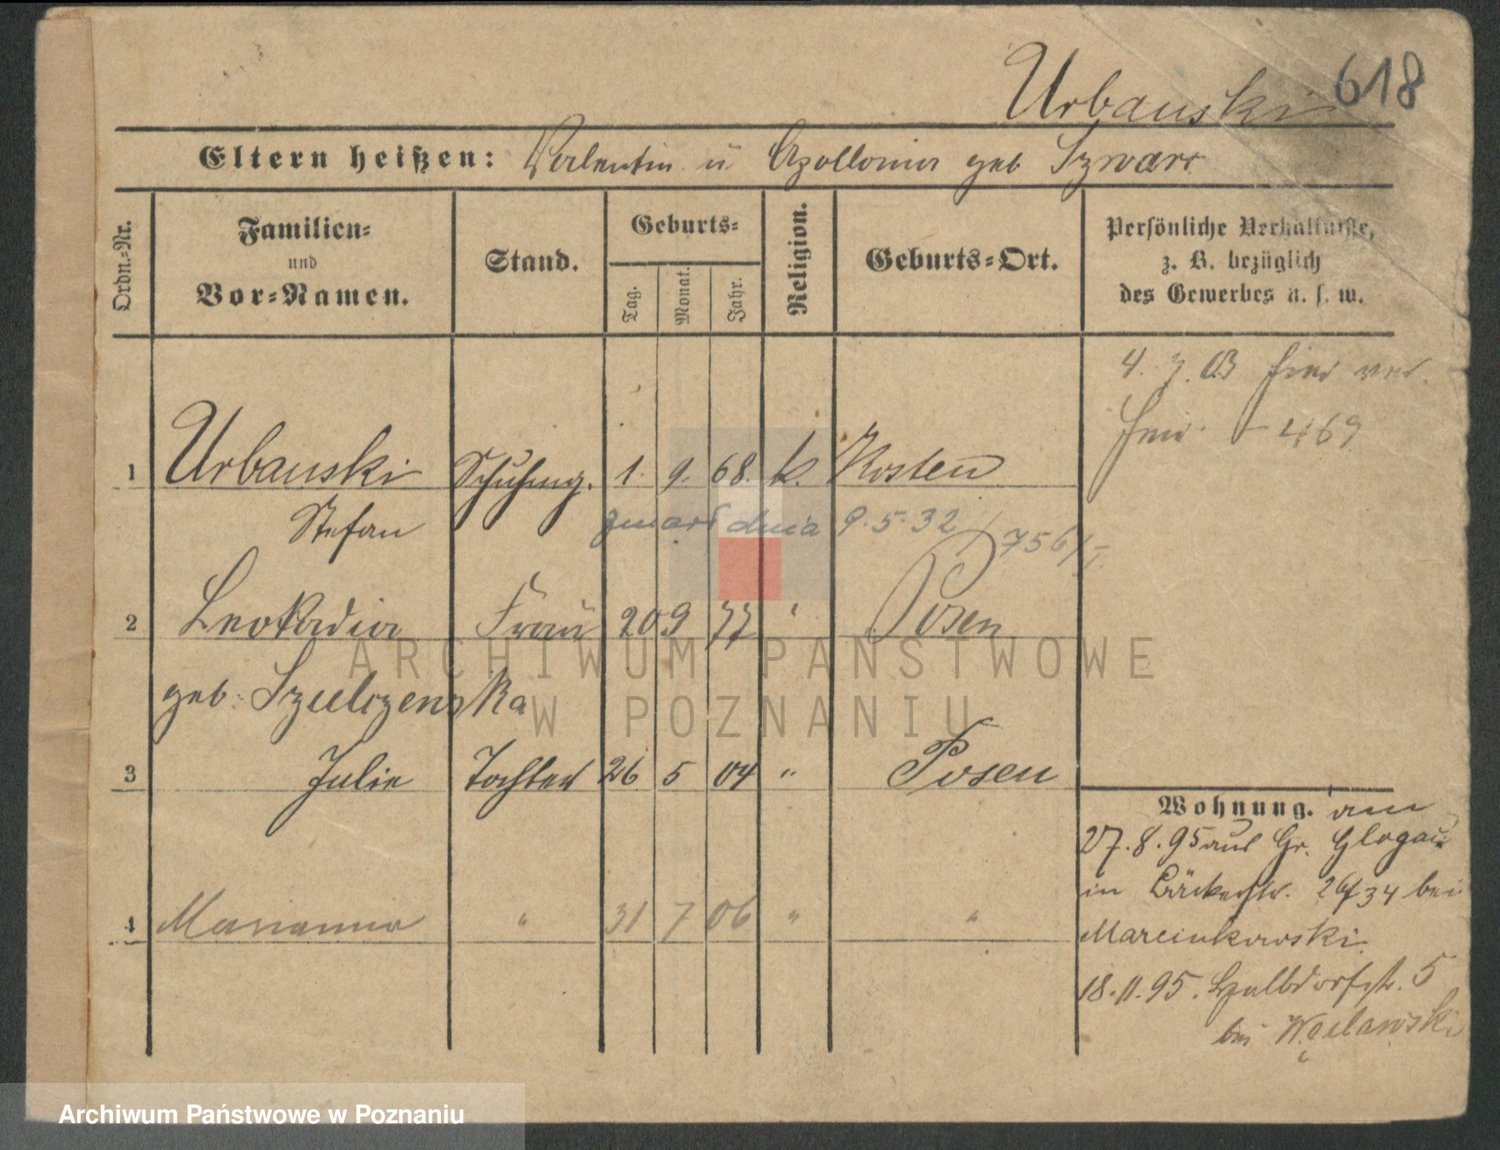 Urbanski 618
Eltern heißen: Valentin u Apollonia geb Szwarc
Ordn.-Nr.
Familien-
und
Vor-Namen.
Stand.
Geburts-
Tag.
Monat.
Jahr.
Religion.
Geburts-Ort.
Persönliche Verhältnisse,
z. B. bezüglich
des Gewerbes u. s. w.
4. 7. 03 hier
469
1 Urbanski Schuhmg. 1. 9. 68. k. Kosten
Stefan zmarł dnia 9.5.32 756/
2 Leokadia Frau 20 9 77 " Posen
geb. Szulczenska
3 Julie Tochter 26 5 04 " Posen
4 Marianna " 31 7 06 " "
Wohnung. am
27.8.95 aus Gr. Glogau
in Bäckerstr. 34 bei
Marcinkowski
18.11.95. Halbdorfstr. 5
bei Węclawski
ARCHIWUM PAŃSTWOWE
W POZNANIU
Archiwum Państwowe w Poznaniu